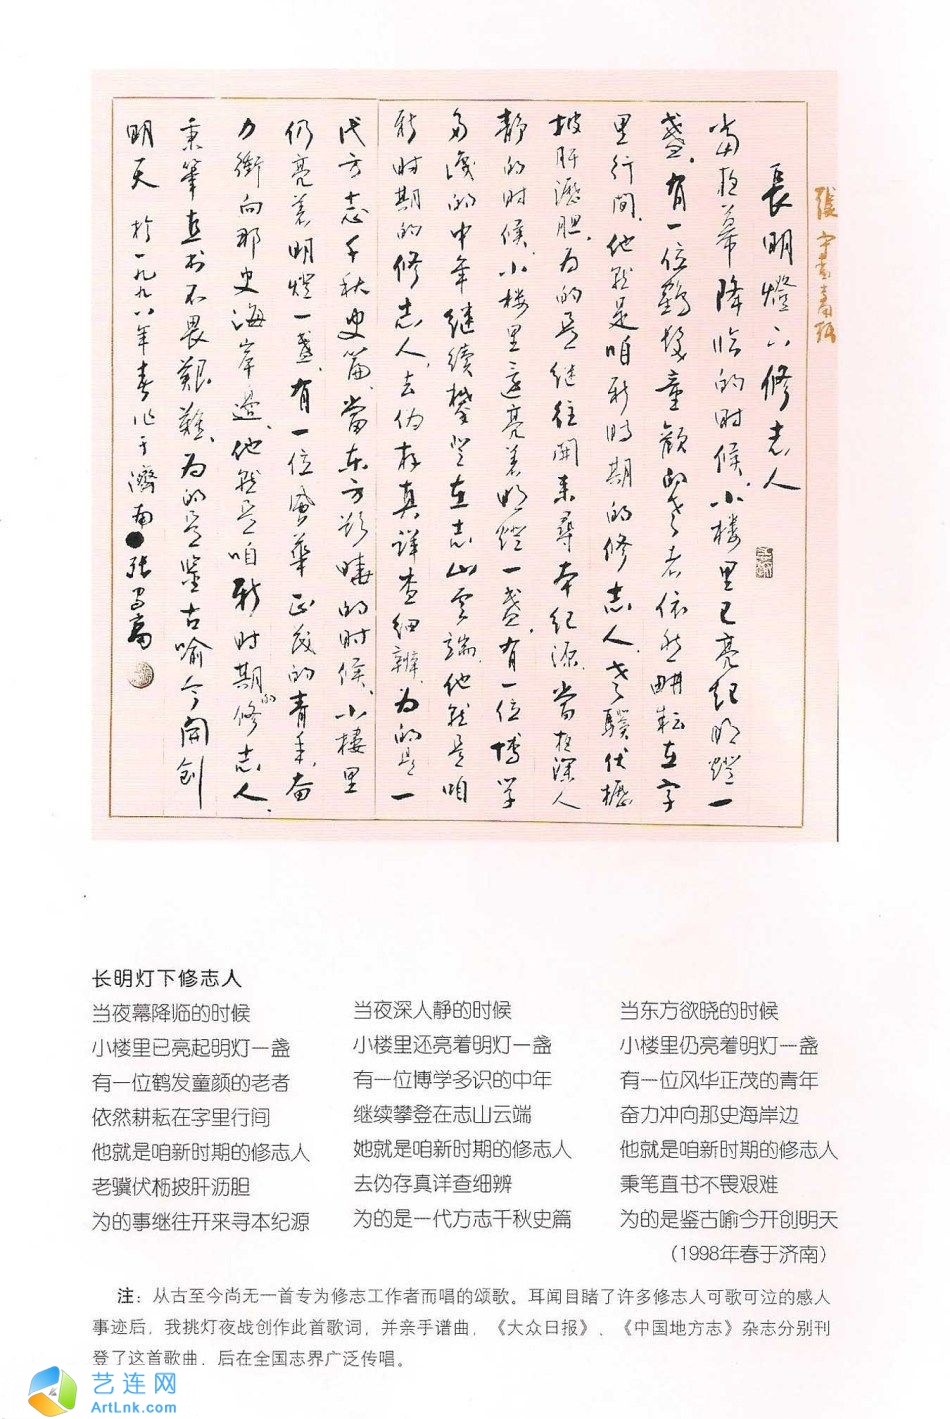 長明燈下修志人
当夜幕降临的时候，小楼里已亮起明燈一
盏，有一位鶴髮童顔的老者依然耕耘在字
里行间，他就是咱新时期的修志人，老驥伏櫪
披肝瀝胆，为的是继往開来尋本纪源，當夜深人
静的时候，小楼里还亮着明燈一盏，有一位博学
多識的中年继续攀登在志山云端，他就是咱
新时期的修志人，去伪存真详查细辨，为的是一
代方志千秋史篇，當东方欲曉的时候，小楼里
仍亮着明燈一盏，有一位風華正茂的青年，奋
力衝向那史海岸邊，他就是咱新时期的修志人，
秉筆直书不畏艱難，为的是鑒古喻今開创
明天 於一九九八年春作于濟南
长明灯下修志人
当夜幕降临的时候
小楼里已亮起明灯一盏
有一位鹤发童颜的老者
依然耕耘在字里行间
他就是咱新时期的修志人
老骥伏枥披肝沥胆
为的事继往开来寻本纪源
当夜深人静的时候
小楼里还亮着明灯一盏
有一位博学多识的中年
继续攀登在志山云端
她就是咱新时期的修志人
去伪存真详查细辨
为的是一代方志千秋史篇
当东方欲晓的时候
小楼里仍亮着明灯一盏
有一位风华正茂的青年
奋力冲向那史海岸边
他就是咱新时期的修志人
秉笔直书不畏艰难
为的是鉴古喻今开创明天
（1998年春于济南）
注：从古至今尚无一首专为修志工作者而唱的颂歌。耳闻目睹了许多修志人可歌可泣的感人
事迹后，我挑灯夜战创作此首歌词，并亲手谱曲，《大众日报》、《中国地方志》杂志分别刊
登了这首歌曲．后在全国志界广泛传唱。
艺连网
ArtLnk.com